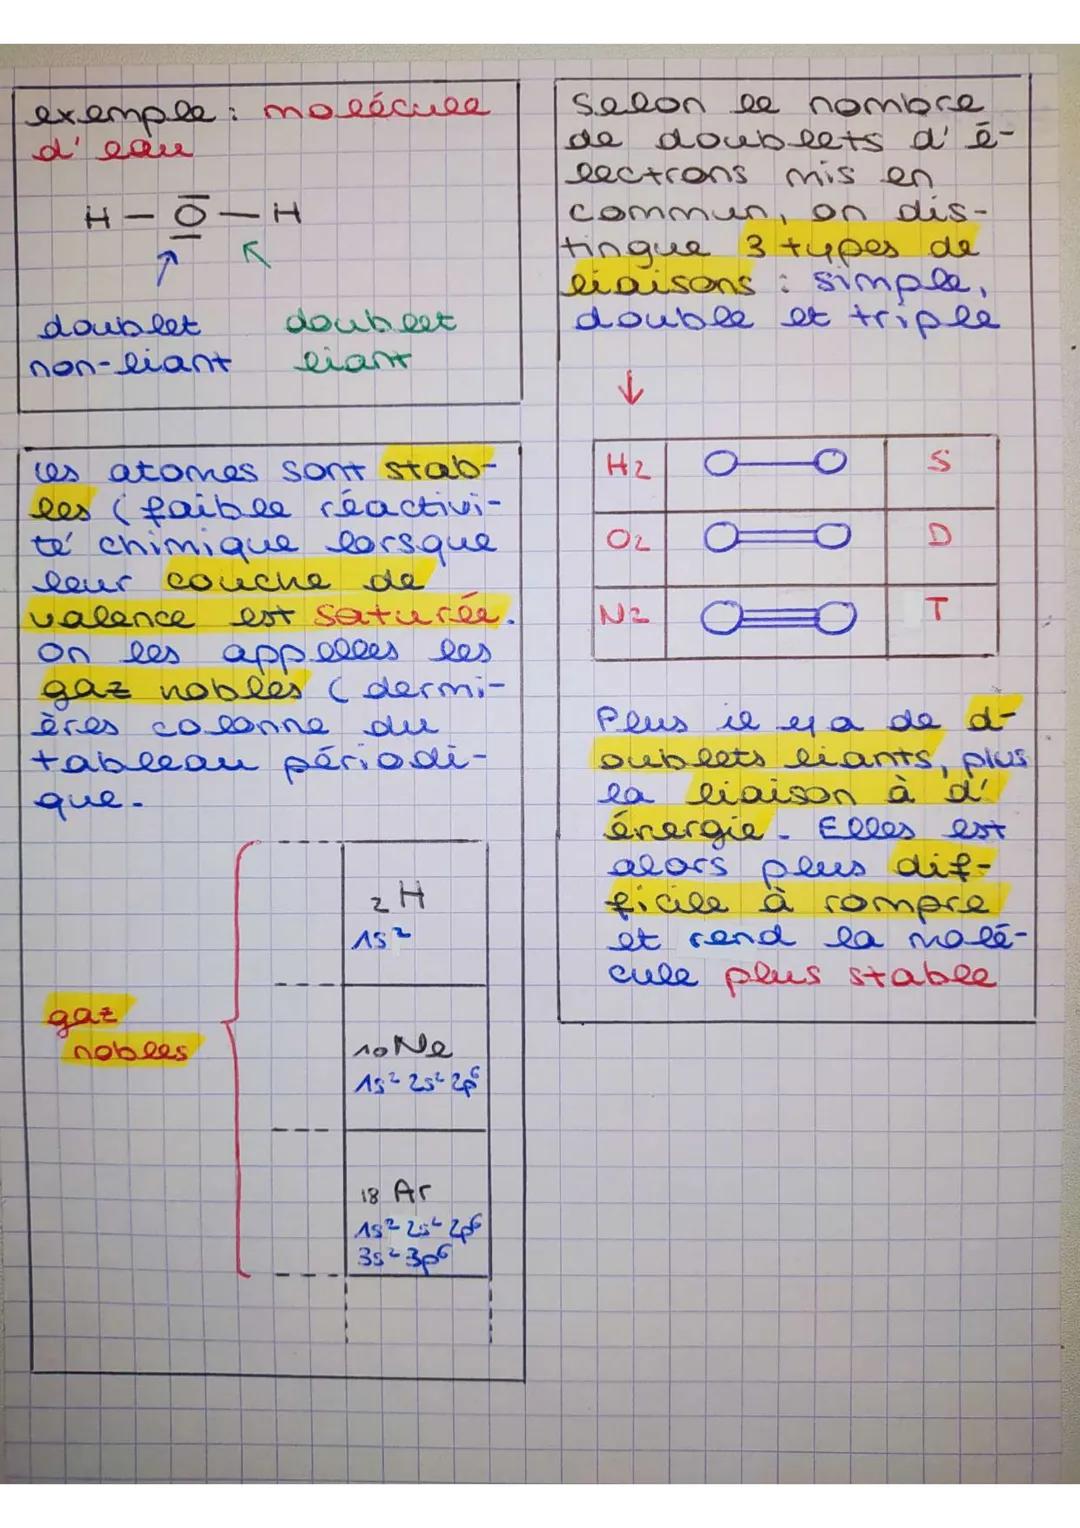 exemple : molécule
d'eau
H – O – H
doublet doublet
non-liant liant
Les atomes sont stab-
les (faible réactivi-
té chimique lorsque
leur couche de
valence est saturée.
On les appelles les
gaz nobles (dermi-
ères colonne du
tableau périodi-
que.
gaz
nobles
2 H
1s²
10 Ne
1s² 2s² 2p⁶
18 Ar
1s² 2s² 2p⁶
3s² 3p⁶
Selon le nombre
de doublets d'é-
lectrons mis en
commun, on dis-
tingue 3 types de
liaisons : simple,
double et triple
H2 S
O2 D
N2 T
Plus il y a de d-
oublets liants, plus
la liaison à d'
énergie. Elles est
alors plus dif-
ficile à rompre
et rend la molé-
cule plus stable